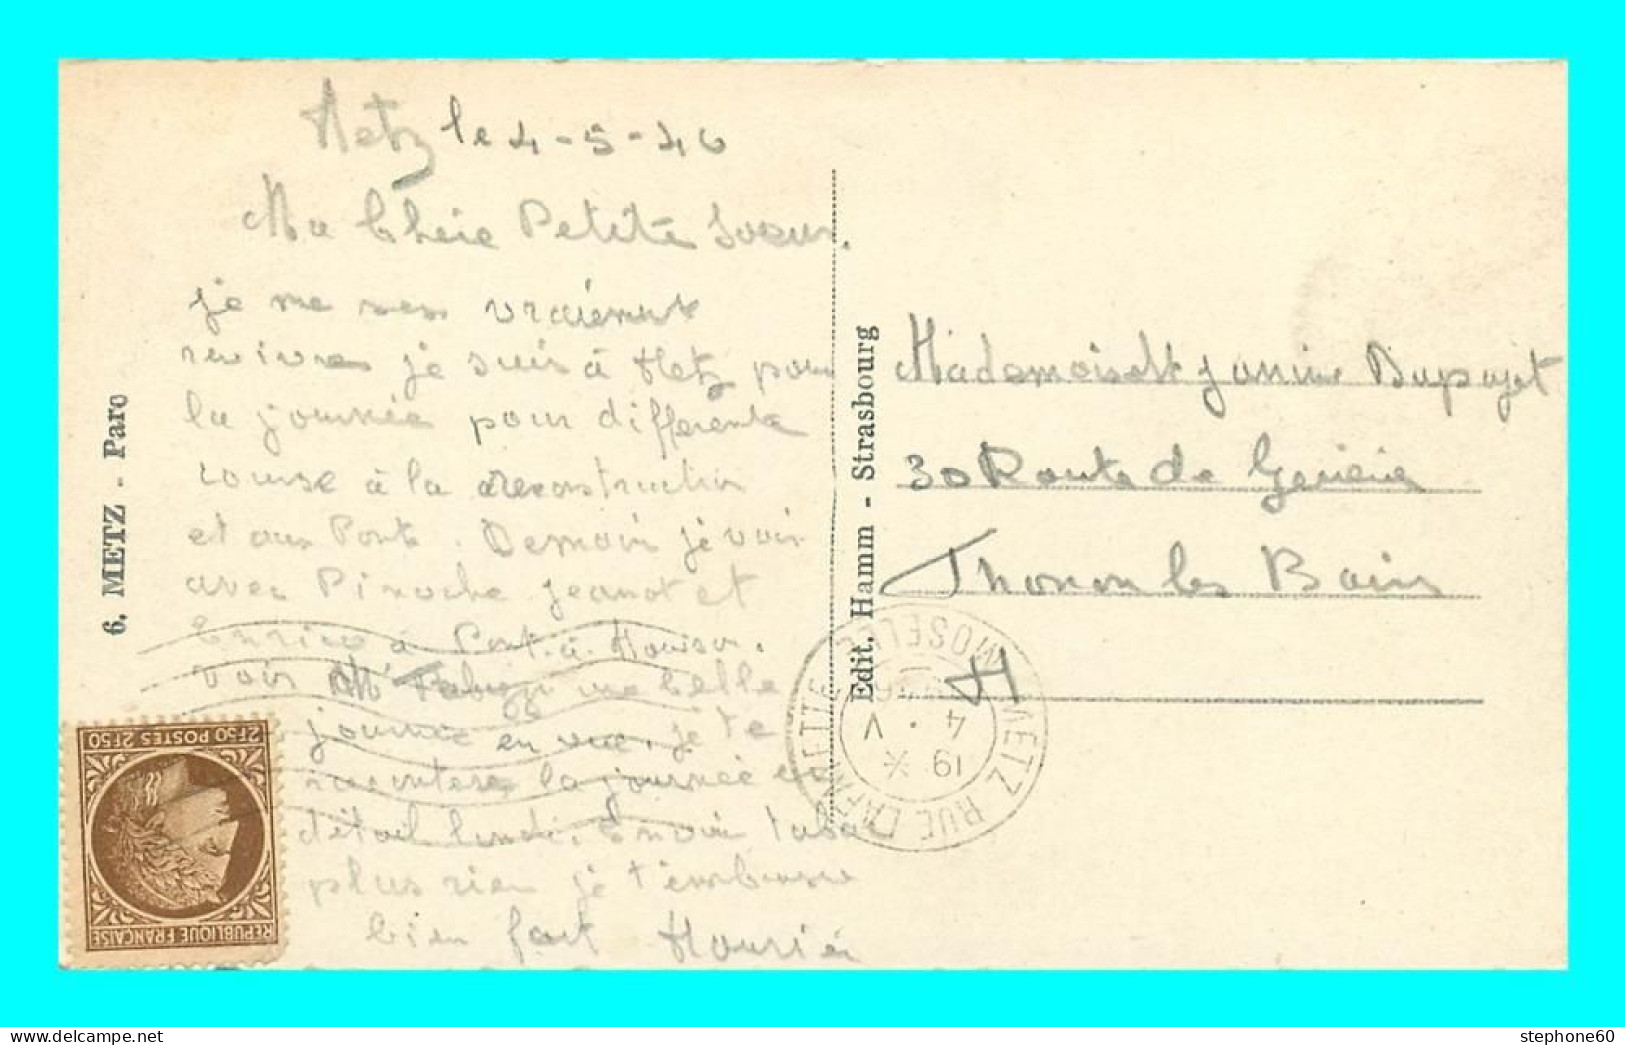 Metz le 4-5-46
Ma Chère Petite Soeur.
je me sens vraiement
revivre je suis à Metz pour
la journée pour differente
course à la reconstruction
et aux Ponts. Demain je vais
avec Pinoche Jeanot et
Enrico à Pont-à-Mouson.
voir une belle
journée en vue. je te
raconters la journée en
détail lundi. Envoi taba
plus rien je t'embrasse
bien fort Maurice
6. METZ - Parc
Edit. Hamm - Strasbourg
Mademoiselle Janine Dupuyet
30 Route de Genève
Thonon les Bains
METZ RUE LAFAYETTE
MOSELLE
19 *
4 . V
2F50 POSTES 2F50
REPUBLIQUE FRANÇAISE
stephone60